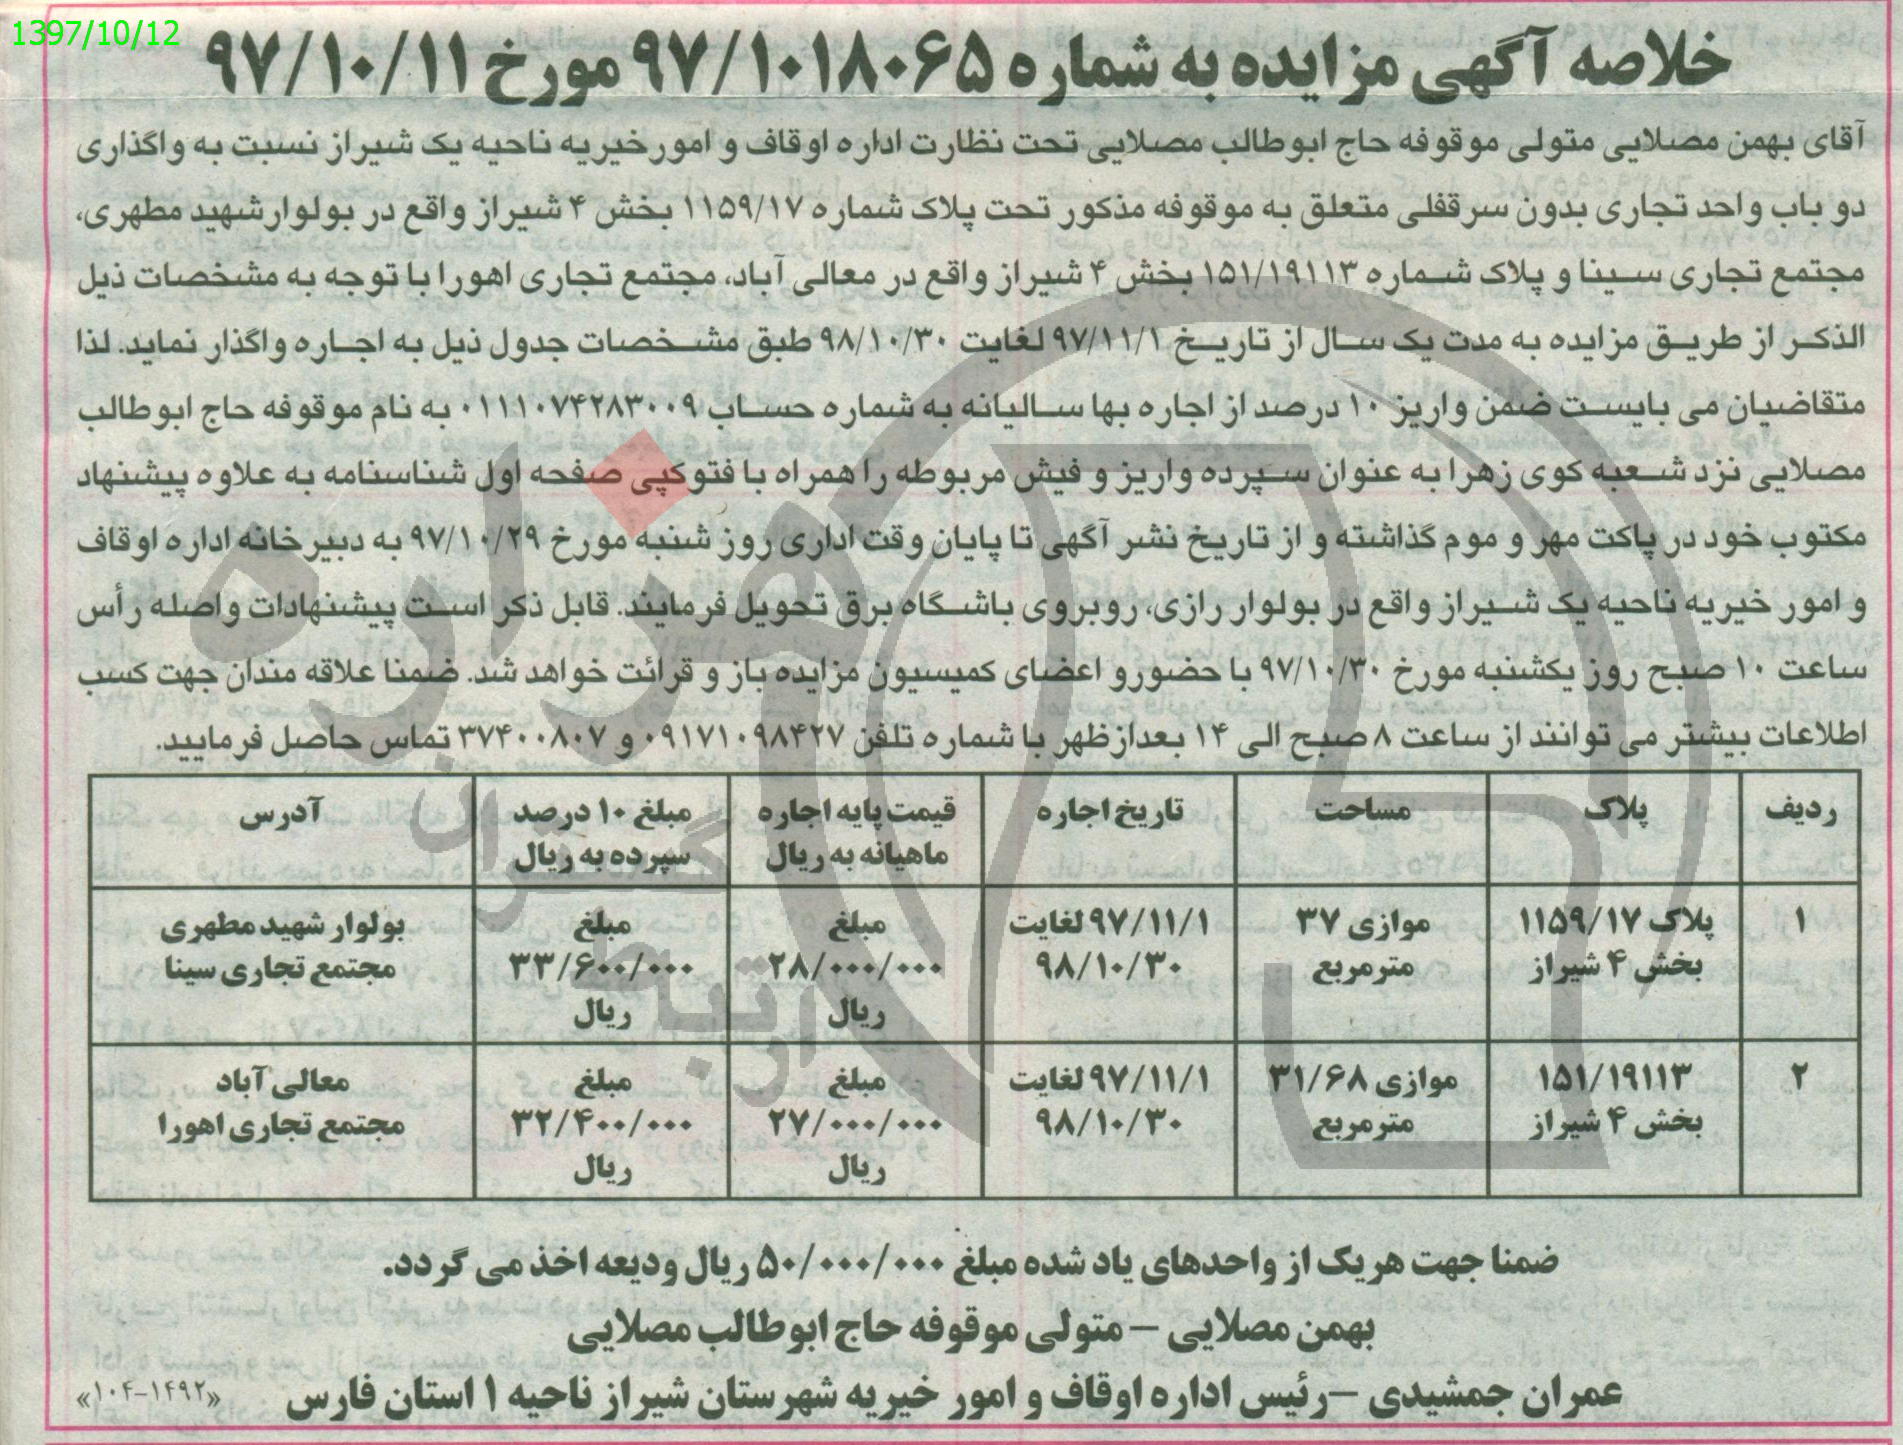 1397/10/12
خلاصه آگهی مزایده به شماره ۹۷/۱۰۱۸۰۶۵ مورخ ۹۷/۱۰/۱۱
آقای بهمن مصلایی متولی موقوفه حاج ابوطالب مصلایی تحت نظارت اداره اوقاف و امورخیریه ناحیه یک شیراز نسبت به واگذاری
دو باب واحد تجاری بدون سرقفلی متعلق به موقوفه مذکور تحت پلاک شماره ۱۱۵۹/۱۷ بخش ۴ شیراز واقع در بولوارشهید مطهری،
مجتمع تجاری سینا و پلاک شماره ۱۵۱/۱۹۱۱۳ بخش ۴ شیراز واقع در معالی آباد، مجتمع تجاری اهورا با توجه به مشخصات ذیل
الذکر از طریق مزایده به مدت یک سال از تاریخ ۹۷/۱۱/۱ لغایت ۹۸/۱۰/۳۰ طبق مشخصات جدول ذیل به اجاره واگذار نماید. لذا
متقاضیان می بایست ضمن واریز ۱۰ درصد از اجاره بها سالیانه به شماره حساب ۰۱۱۱۰۷۴۲۸۳۰۰۹ به نام موقوفه حاج ابوطالب
مصلایی نزد شعبه کوی زهرا به عنوان سپرده واریز و فیش مربوطه را همراه با فتوکپی صفحه اول شناسنامه به علاوه پیشنهاد
مکتوب خود در پاکت مهر و موم گذاشته و از تاریخ نشر آگهی تا پایان وقت اداری روز شنبه مورخ ۹۷/۱۰/۲۹ به دبیرخانه اداره اوقاف
و امور خیریه ناحیه یک شیراز واقع در بولوار رازی، روبروی باشگاه برق تحویل فرمایند. قابل ذکر است پیشنهادات واصله رأس
ساعت ۱۰ صبح روز یکشنبه مورخ ۹۷/۱۰/۳۰ با حضورو اعضای کمیسیون مزایده باز و قرائت خواهد شد. ضمنا علاقه مندان جهت کسب
اطلاعات بیشتر می توانند از ساعت ۸ صبح الی ۱۴ بعدازظهر با شماره تلفن ۰۹۱۷۱۰۹۸۴۲۷ و ۳۷۴۰۰۸۰۷ تماس حاصل فرمایید.
ردیف پلاک مساحت تاریخ اجاره قیمت پایه اجاره مبلغ ۱۰ درصد آدرس
ماهیانه به ریال سپرده به ریال
۱ پلاک ۱۱۵۹/۱۷ موازی ۳۷ ۹۷/۱۱/۱ لغایت مبلغ مبلغ بولوار شهید مطهری
بخش ۴ شیراز مترمربع ۹۸/۱۰/۳۰ ۲۸/۰۰۰/۰۰۰ ۳۳/۶۰۰/۰۰۰ مجتمع تجاری سینا
ریال ریال
۲ ۱۵۱/۱۹۱۱۳ موازی ۳۱/۶۸ ۹۷/۱۱/۱ لغایت مبلغ مبلغ معالی آباد
بخش ۴ شیراز مترمربع ۹۸/۱۰/۳۰ ۲۷/۰۰۰/۰۰۰ ۳۲/۴۰۰/۰۰۰ مجتمع تجاری اهورا
ریال ریال
ضمنا جهت هریک از واحدهای یاد شده مبلغ ۵۰/۰۰۰/۰۰۰ ریال ودیعه اخذ می گردد.
بهمن مصلایی – متولی موقوفه حاج ابوطالب مصلایی
عمران جمشیدی –رئیس اداره اوقاف و امور خیریه شهرستان شیراز ناحیه ۱ استان فارس
«۱۰۴-۱۴۹۲»